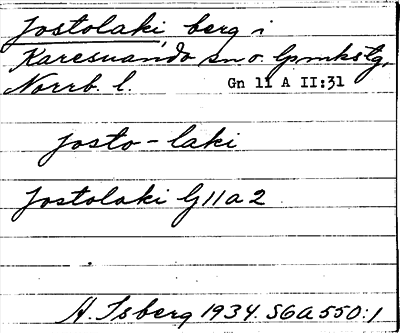 Jostolaki, berg i
Karesuando sn o. lpmkstg,
Norrb. l. Gn 11 A II:31
josto-laki
Jostolaki G11a2
H. Isberg 1934. SGA 550:1